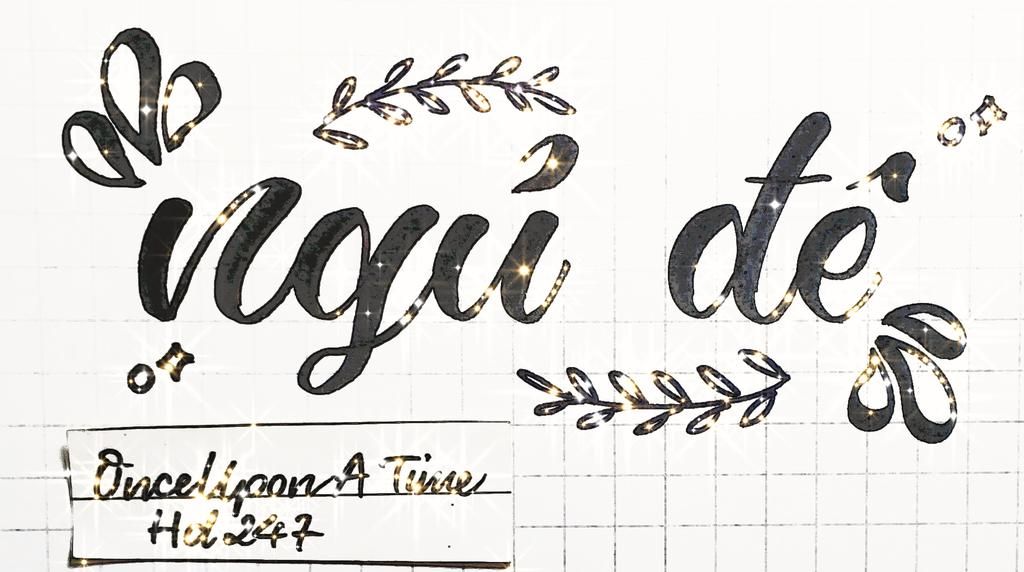 ngú đé
OnceUpon A Time
Hd 247